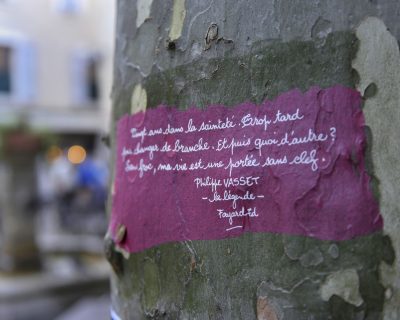 Vingt ans dans la sainteté. Trop tard
pour changer de branche. Et puis quoi d'autre ?
Sans foc, ma vie est une portée sans clef.
Philippe VASSET
- la légende -
Fayard Ed